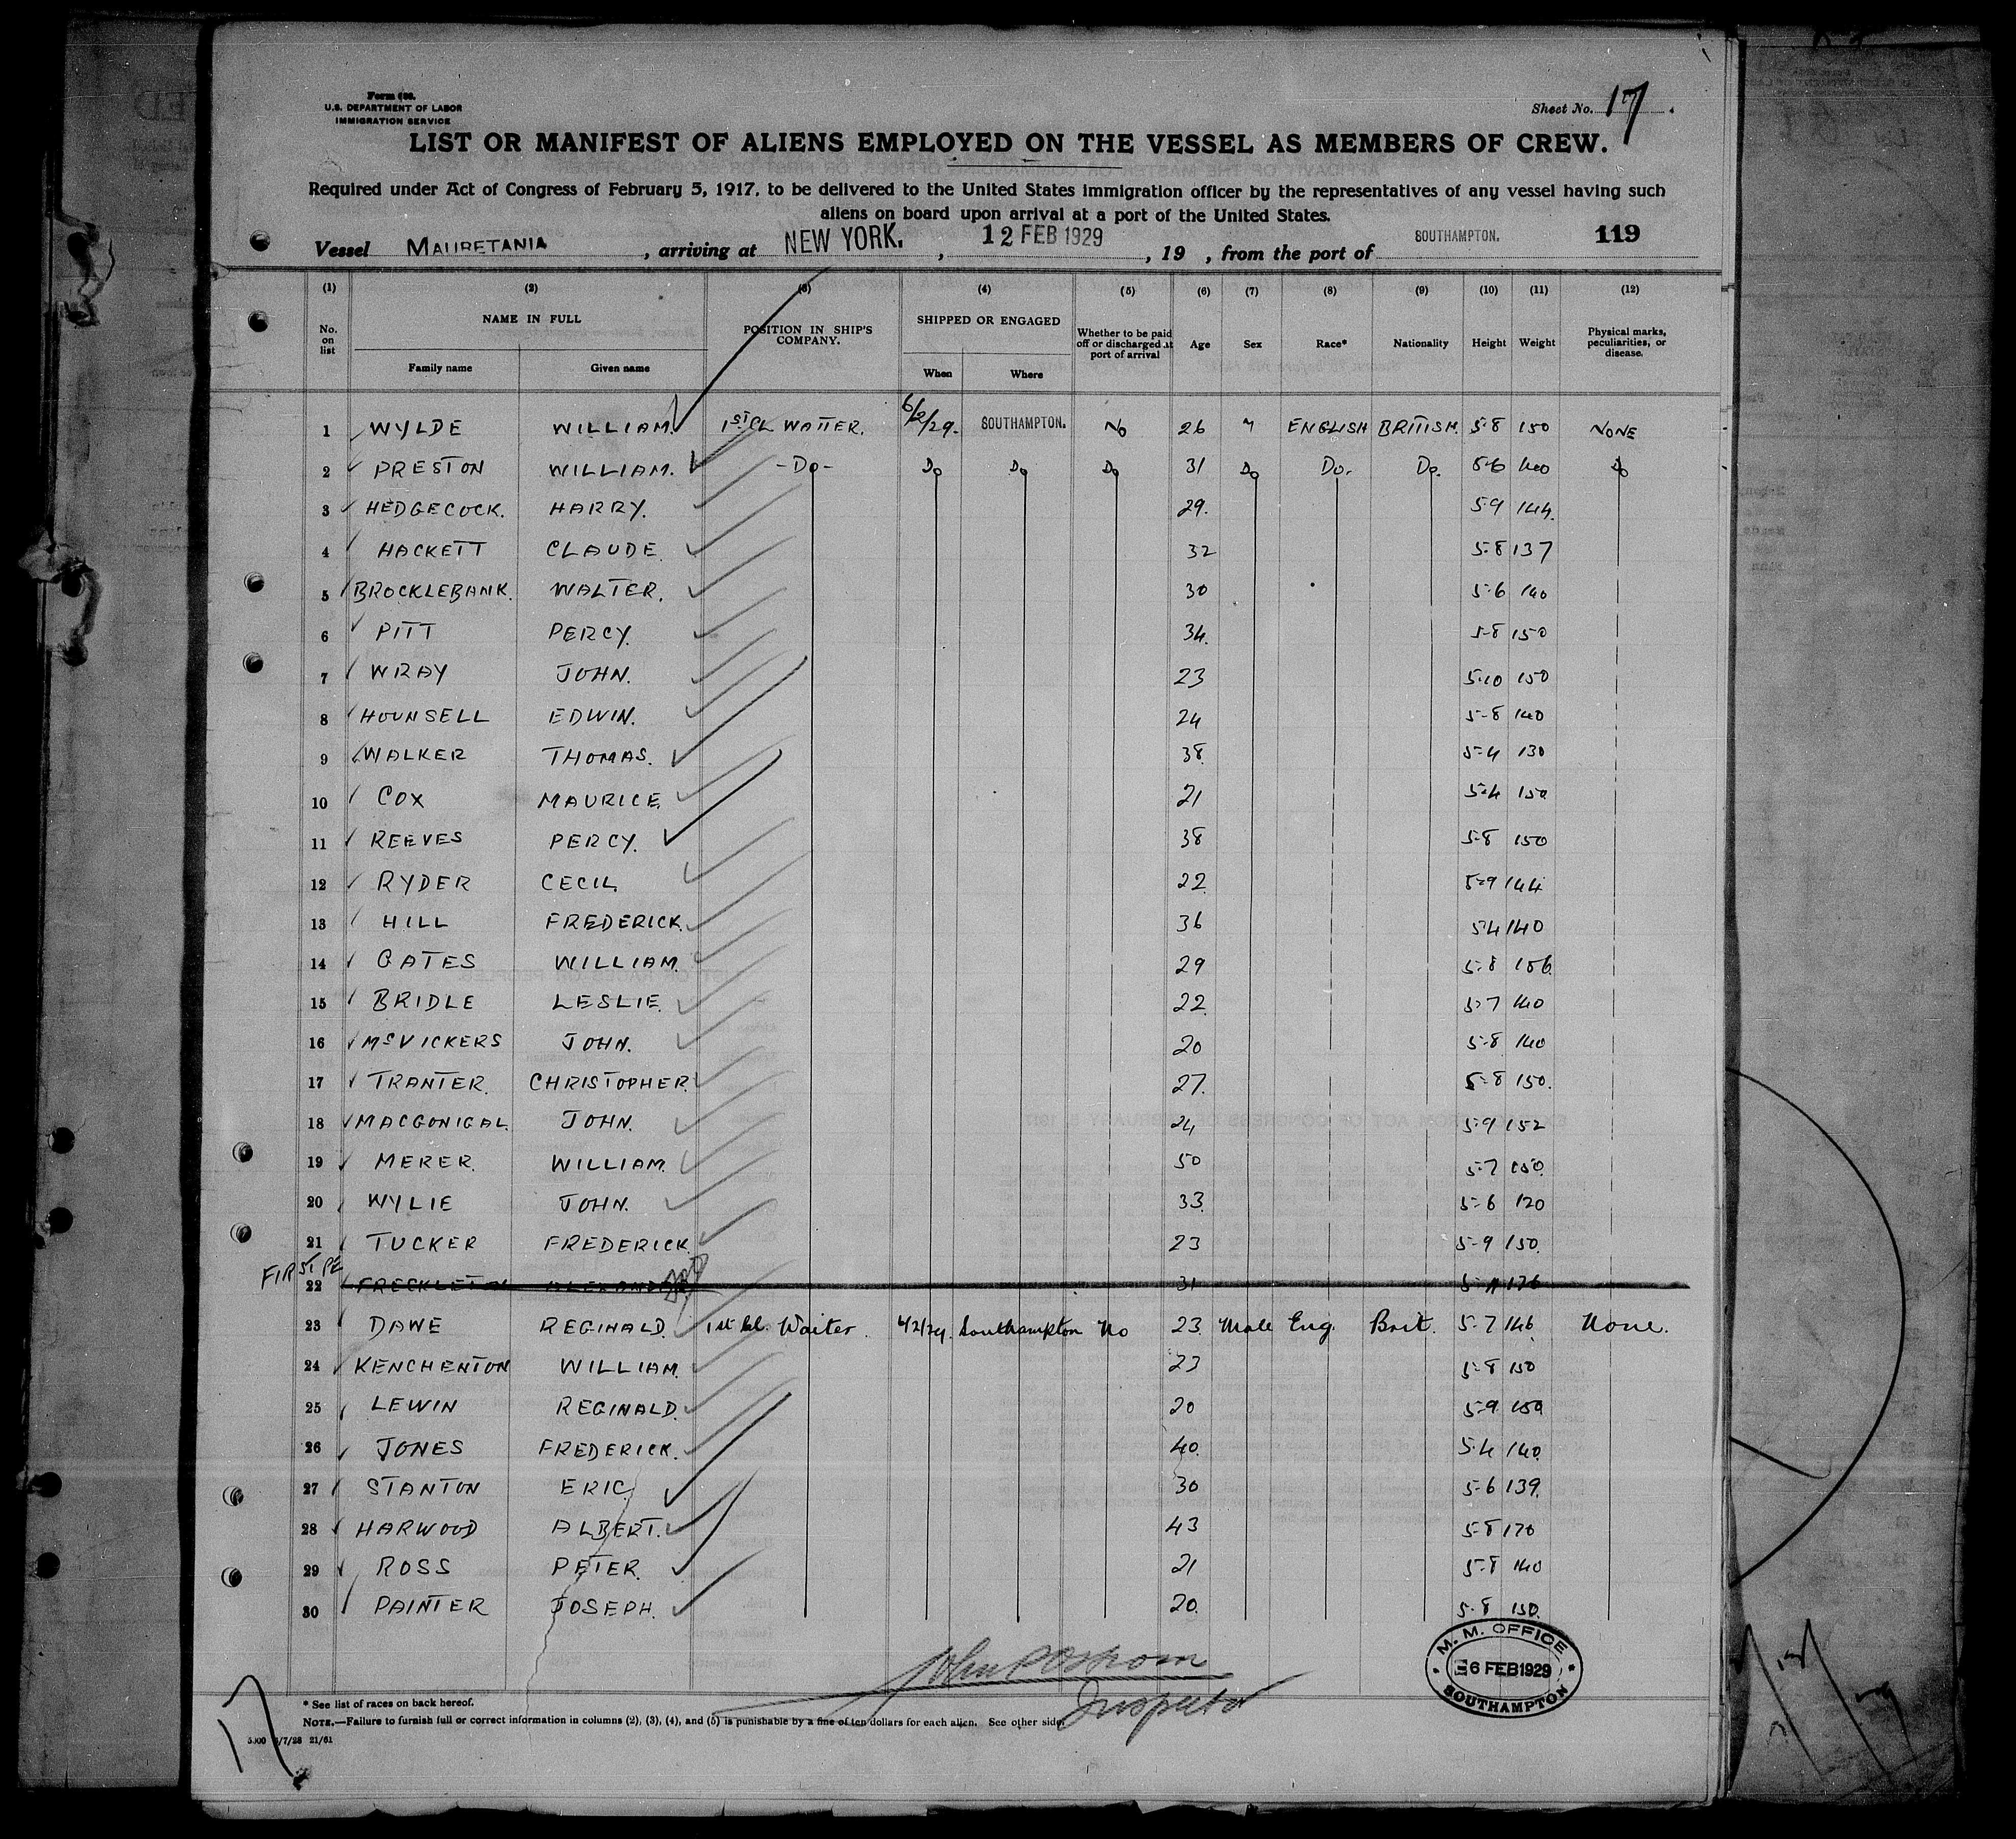 Form 680.
U.S. DEPARTMENT OF LABOR
IMMIGRATION SERVICE
Sheet No. 17
LIST OR MANIFEST OF ALIENS EMPLOYED ON THE VESSEL AS MEMBERS OF CREW.
Required under Act of Congress of February 5, 1917, to be delivered to the United States immigration officer by the representatives of any vessel having such
aliens on board upon arrival at a port of the United States.
119
Vessel MAURETANIA, arriving at NEW YORK., 12 FEB 1929, 19 , from the port of SOUTHAMPTON.
(1) (2) (3) (4) (5) (6) (7) (8) (9) (10) (11) (12)
No. on list NAME IN FULL Family name Given name POSITION IN SHIP'S COMPANY. SHIPPED OR ENGAGED When Where Whether to be paid off or discharged at port of arrival Age Sex Race* Nationality Height Weight Physical marks, peculiarities, or disease.
1 WYLDE WILLIAM. 1ST CL WAITER. 6/2/29. SOUTHAMPTON. No 26 M ENGLISH BRITISH. 5-8 150 NONE
2 PRESTON WILLIAM. -Do- Do Do Do 31 Do Do. Do. 5-6 140 Do
3 HEDGECOCK. HARRY. 29. 5-9 144.
4 HACKETT CLAUDE. 32 5-8 137
5 BROCKLEBANK. WALTER. 30 5-6 140
6 PITT PERCY. 34. 5-8 150
7 WRAY JOHN. 23 5-10 150
8 HOUNSELL EDWIN. 24 5-8 140
9 WALKER THOMAS. 38. 5-4 130
10 COX MAURICE. 21 5-4 150
11 REEVES PERCY. 38 5-8 150
12 RYDER CECIL 22. 5-9 144
13 HILL FREDERICK. 36 5-4 140
14 GATES WILLIAM. 29 5-8 156.
15 BRIDLE LESLIE. 22. 5-7 140
16 McVICKERS JOHN. 20 5-8 140
17 TRANTER. CHRISTOPHER. 27. 5-8 150.
18 MACGONIGAL. JOHN. 24 5-9 152
19 MERER. WILLIAM. 50 5-7 150.
20 WYLIE JOHN. 33. 5-6 120
21 TUCKER FREDERICK. 23 5-9 150.
FIRST PE
22 FRECKLETON ALEXANDER 31 136
23 DAWE REGINALD. 1st Cl. Waiter. 4/2/29. Southampton No 23. Male Eng. Brit. 5-7 146. None.
24 KENCHENTON WILLIAM. 23 5-8 150
25 LEWIN REGINALD. 20 5-9 150
26 JONES FREDERICK. 40. 5-4 140.
27 STANTON ERIC. 30 5-6 139.
28 HARWOOD ALBERT. 43 5-8 170
29 ROSS PETER. 21 5-8 140
30 PAINTER JOSEPH. 20. 5-8 150.
Inspector
M. M. OFFICE
6 FEB 1929
SOUTHAMPTON
* See list of races on back hereof.
NOTE.—Failure to furnish full or correct information in columns (2), (3), (4), and (5) is punishable by a fine of ten dollars for each alien. See other side.
17